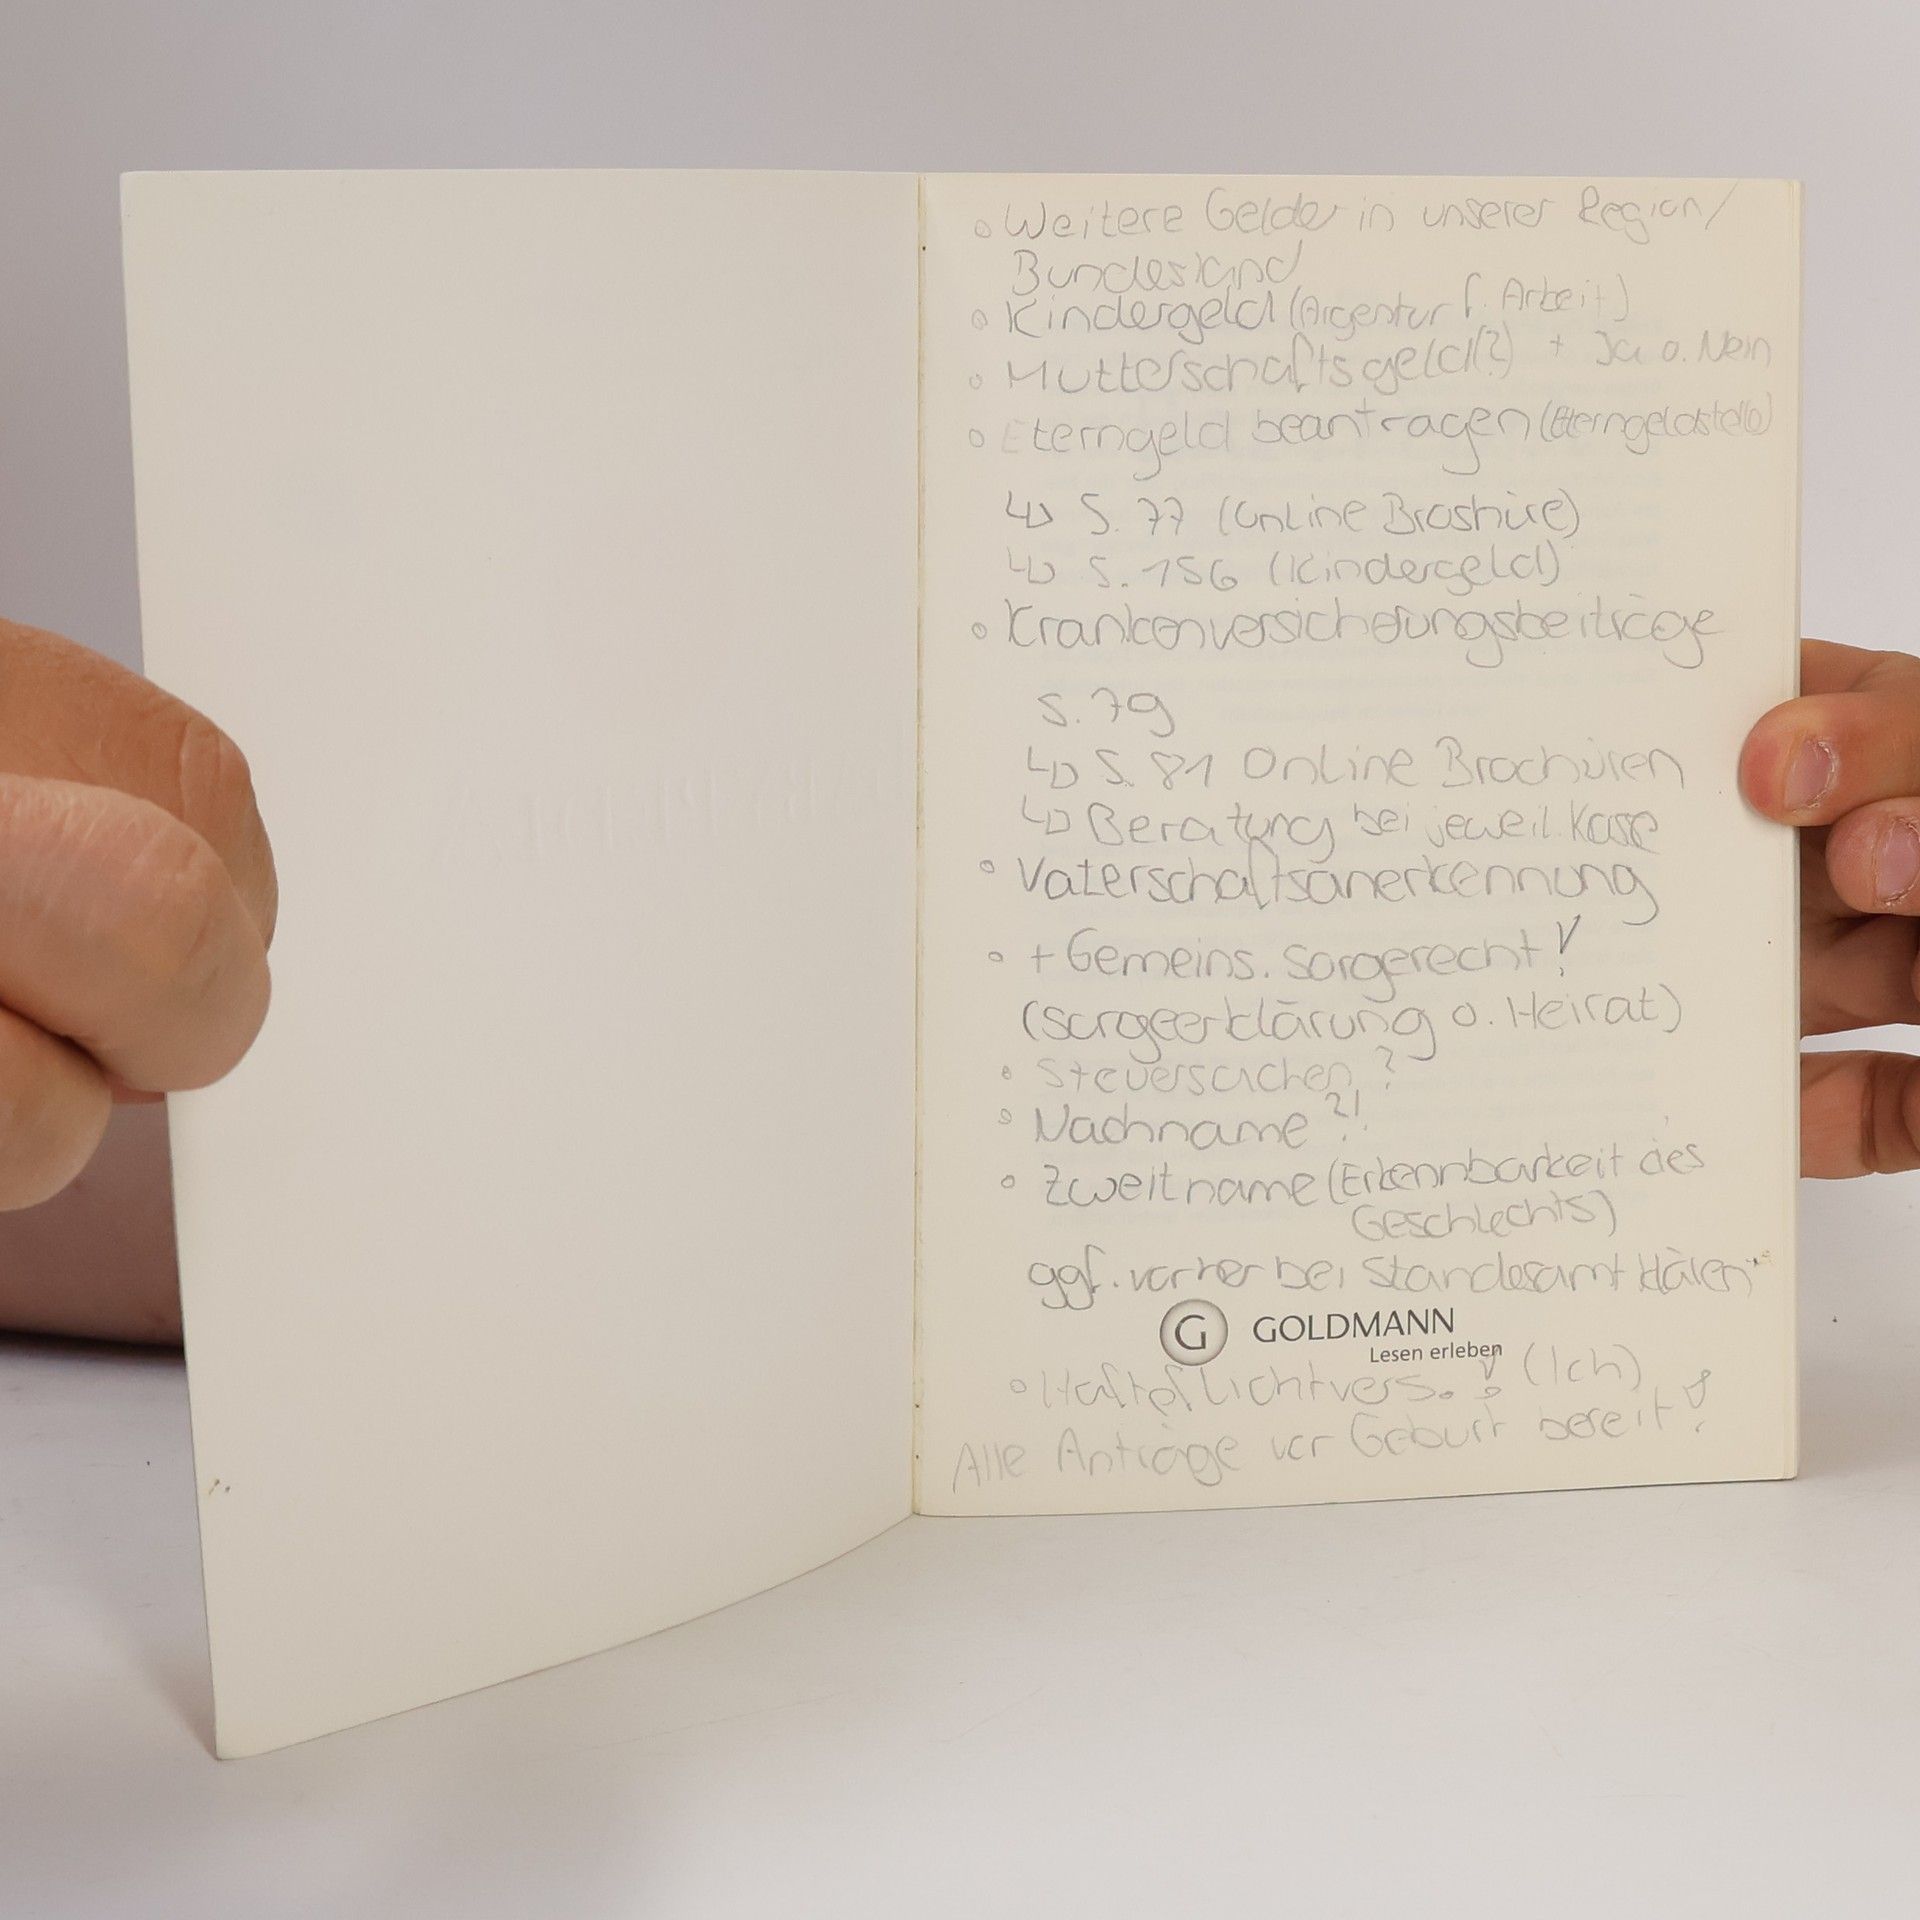 • Weitere Gelder in unserer Region/
Bundesland
• Kindergeld (Argentur f. Arbeit)
• Mutterschaftsgeld(?) + Ja o. Nein
• Elterngeld beantragen (Elterngeldstelle)
↳ S. 77 (Online Broshüre)
↳ S. 156 (Kindergeld)
• Krankenversicherungsbeiträge
S. 79
↳ S. 81 Online Brochüren
↳ Beratung bei jeweil. Kasse
• Vaterschaftsanerkennung
• + Gemeins. Sorgerecht!
(Sorgeerklärung o. Heirat)
• Steuersachen?
• Nachname?!
• Zweitname (Erkennbarkeit des
Geschlechts)
ggf. vorher bei Standesamt klären
G GOLDMANN
Lesen erleben
• Haftpflichtvers.! (Ich)
Alle Anträge vor Geburt bereit!